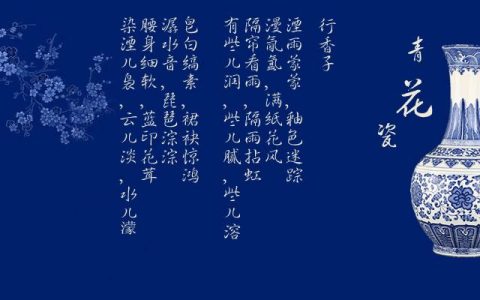 青花瓷
行香子
湮雨蒙蒙,釉色迷踪
漫氤氲,满纸花风
隔帘看雨,隔雨拈虹
有些儿润,有些儿腻,些儿溶
皂白缟素,裙袂惊鸿
潺水音,琵琶淙淙
腰身细软,蓝印花茸
染湮儿袅,云儿淡,水儿濛